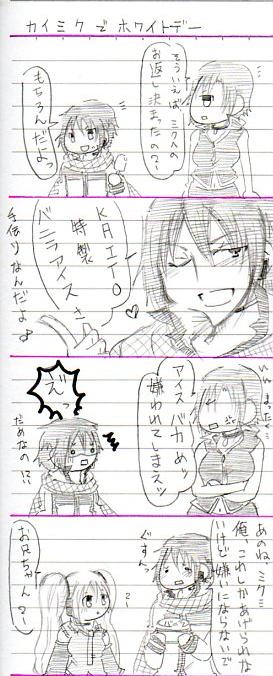 カイミクでホワイトデー
そういえばミクへの
お返し決まったの?ー
もちろんだよっ
KAITO
特製
バニラアイスさ
手作りなんだよ♪
アイスバカめッ
嫌われてしまえッ
え゛
だめなの!?
あのね、ミク…
俺、これしかあげられな
いけど嫌いにならないで
ぐすん
お兄ちゃん?ー